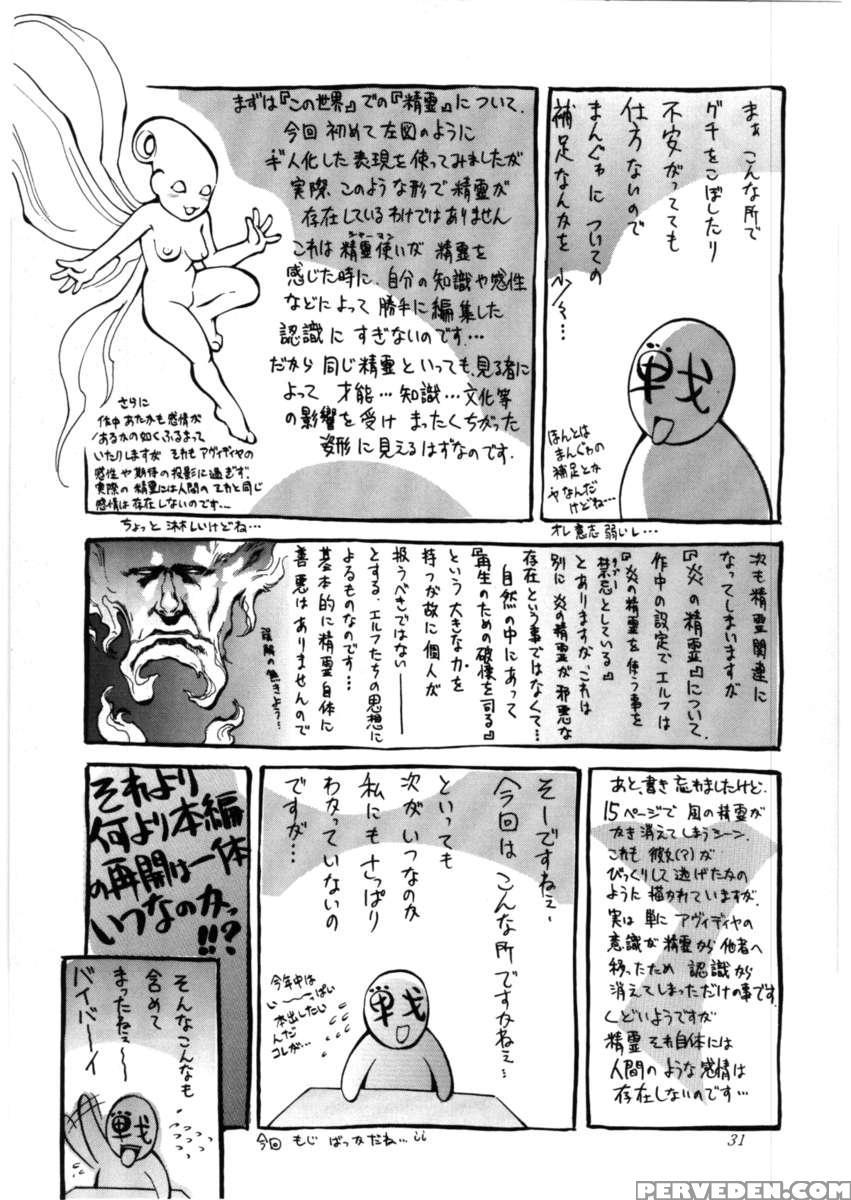 まぁ こんな所で
グチをこぼしたり
不安がってても
仕方ないので
まんぐゎに ついての
補足なんかを 少々…
ほんとは
まんぐゎの
補足とか
ヤなんだ
けどね…
オレ意志弱いし…
まずは『この世界』での『精霊』について.
今回 初めて左図のように
ギ人化した表現を使ってみましたが
実際 このような形で精霊が
存在しているわけではありません
シャーマン
これは 精霊使いが 精霊を
感じた時に、自分の知識や感性
などによって 勝手に編集した
認識に すぎないのです…
だから 同じ精霊といっても、見る者に
よって 才能…知識…文化等
の影響を受け まったくちがった
姿形に見えるはずなのです.
さらに
作中あたかも感情が
あるかの如くふるまって
いたりしますが それもアヴィディヤの
感性や期待の投影に過ぎず.
実際の精霊には人間のソレと同じ
感情は存在しないのです…
ちょっと淋しいけどね…
次も精霊関連に
なってしまいますが
『炎の精霊』について.
作中の設定でエルフは
『炎の精霊を使う事を
タブー
禁忌としている』
とありますが、これは
別に炎の精霊が邪悪な
存在という事ではなくて…
自然の中にあって
『再生のための破壊を司る』
という大きな力を
持つが故に個人が
扱うべきではない――
とする、エルフたちの思想に
よるものなのです…
基本的に精霊自体に
善悪はありませんので
誤解の無きよう…
あと、書き忘れましたけど.
15ページで 風の精霊が
かき消えてしまうシーン.
これも 彼女(?)が
びっくりして逃げたかの
ように描かれていますが.
実は 単に アヴィディヤの
意識が 精霊から 他者へ
移ったため 認識から
消えてしまっただけの事です.
くどいようですが
精霊 それ自体には
人間のような感情は
存在しないのです…
そーですねぇ~
今回は こんな所ですかねぇ…
といっても
次がいつなのか
私にも さっぱり
わかっていないの
ですが…
今年中は
い~~っぱい
本出したい
んだ
コレが…
今回 もじ ばっかだね…
それより
何より本編
の再開は一体
いつなのかっ
!!?
そんなこんなも
含めて
まったねぇ~~
バイバーイ
戦
戦
戦
31
PERVEDEN.COM